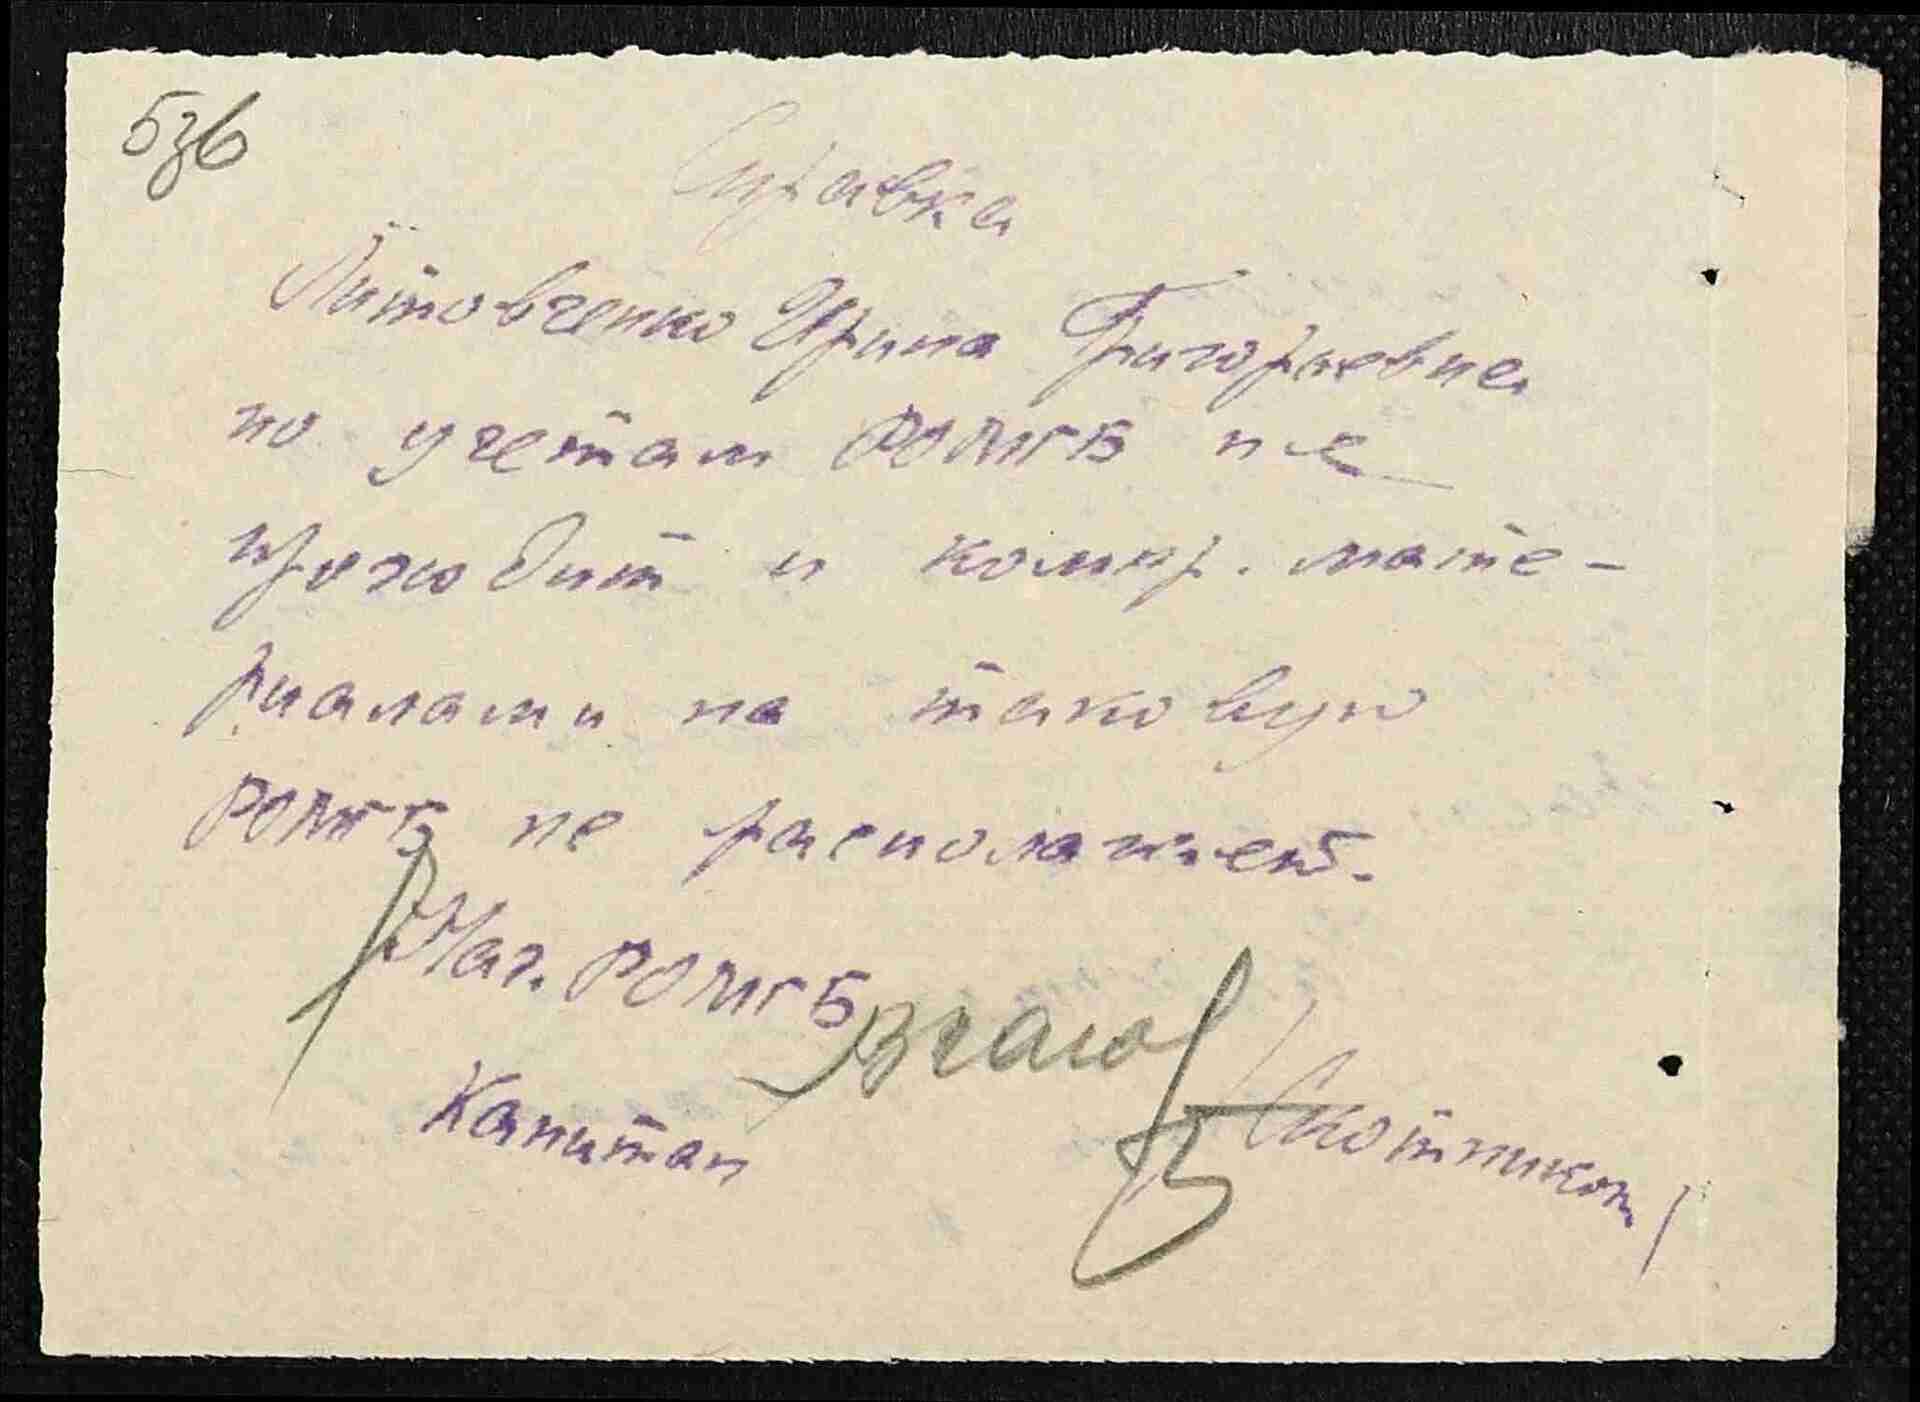 Справка
Литовченко Ирина Григорьевна
по учетам РОМГБ не
проходит и компр. мате-
риалами на таковую
РОМГБ не располагает.
Нач. РОМГБ
Капитан